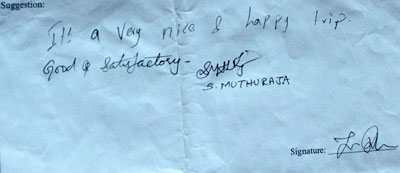 Suggestion:
It's a Very nice & happy trip.
Good & Satisfactory-
S. MUTHURAJA
Signature: